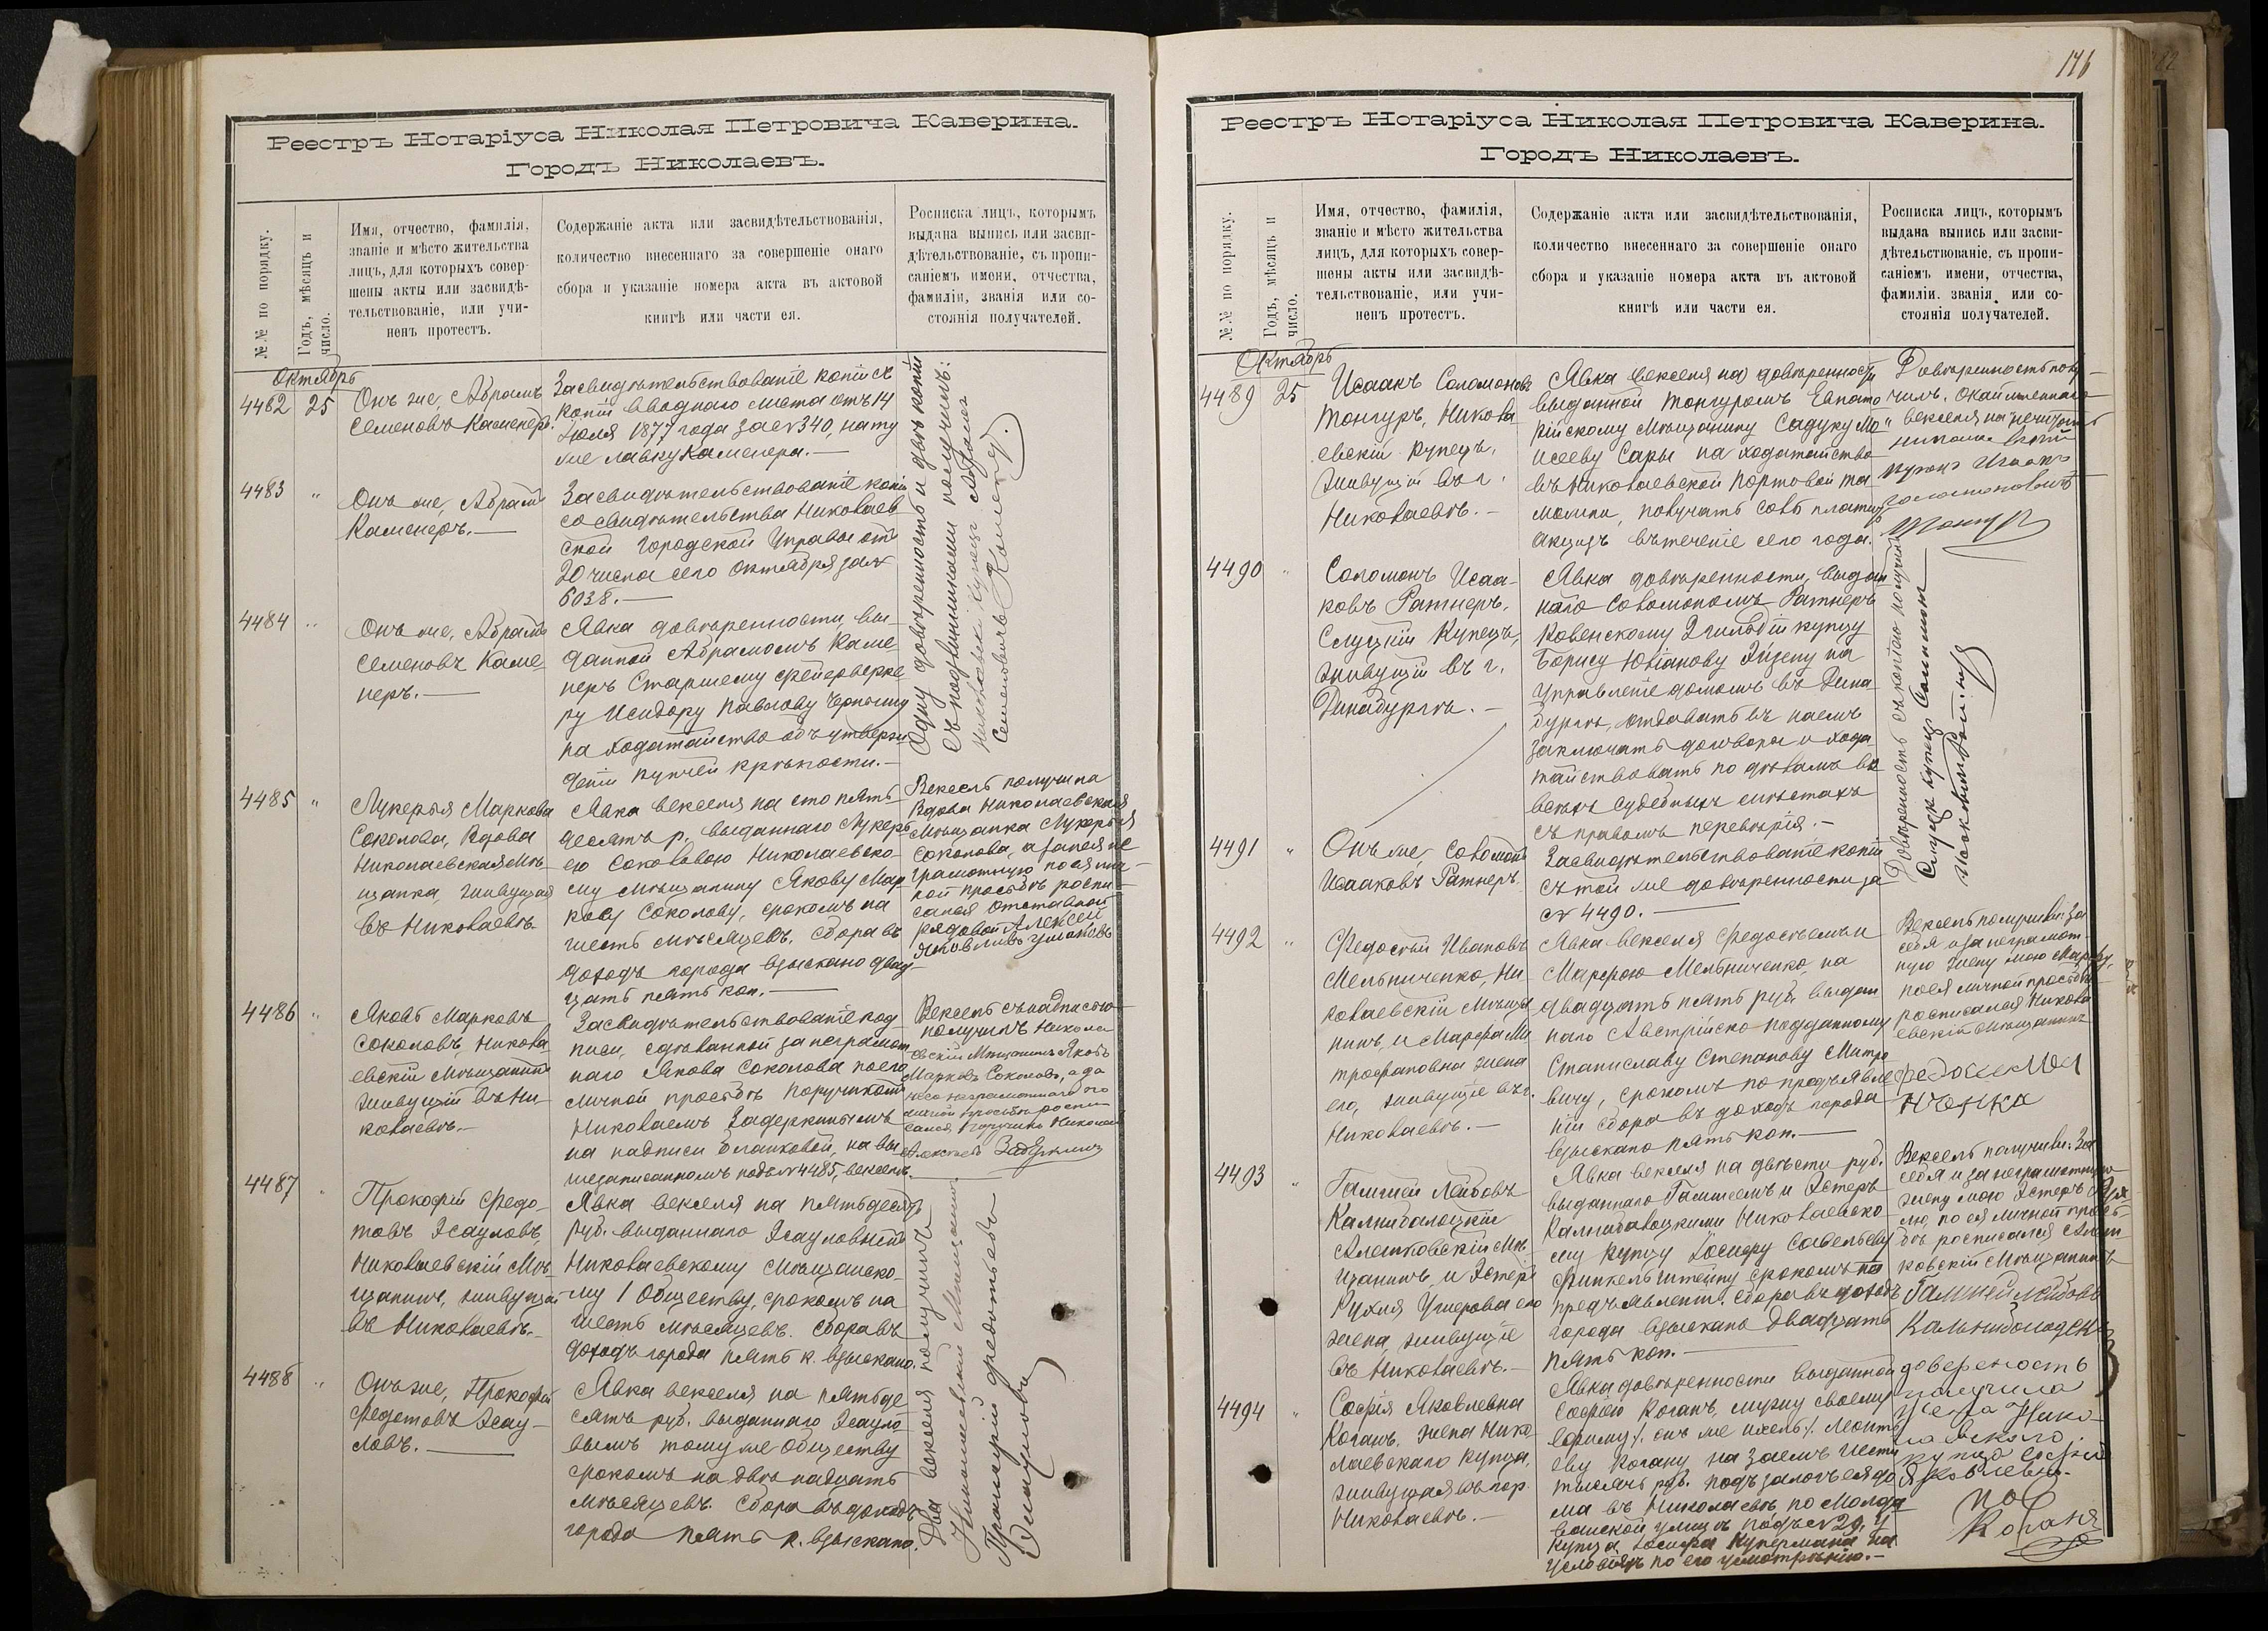 Реестръ Нотаріуса Николая Петровича Каверина.
Городъ Николаевъ.
№№ по порядку.
Годъ, мѣсяцъ и
число.
Имя, отчество, фамилія,
званіе и мѣсто жительства
лицъ, для которыхъ совер-
шены акты или засвидѣ-
тельствованіе, или учи-
ненъ протестъ.
Содержаніе акта или засвидѣтельствованія,
количество внесеннаго за совершеніе онаго
сбора и указаніе номера акта въ актовой
книгѣ или части ея.
Росписка лицъ, которымъ
выдана выпись или засви-
дѣтельствованіе, съ пропи-
саніемъ имени, отчества,
фамиліи, званія или со-
стоянія получателей.
Октябрь
4482 25
Онъ же, Абрамъ
Семеновъ Каменеръ.
Засвидѣтельствованіе копіи съ
копіи вводнаго листа отъ 14
Іюля 1877 года за № 340, на ту
же лавку Каменера.—
4483 "
Онъ же, Абрамъ
Каменеръ.—
Засвидѣтельствованіе копіи
со свидѣтельства Николаев
ской Городской Управы отъ
20 числа сего Октября за №
6038.—
4484 "
Онъ же, Абрамъ
Семеновъ Каме-
неръ.—
Явка довѣренности, вы-
данной Абрамомъ Каме-
неръ Старшему фейерверке
ру Исидору Павлову
на ходатайство объ утверж
деніи купчей крѣпости.—
Одну довѣренность и двѣ копіи
съ подлинниками получилъ:
Николаевск. Купецъ Абрамъ
Семеновичъ Каменеръ.
4485 "
Лукерья Маркова
Соколова, Вдова
Николаевская Мѣ-
щанка, живущая
въ Николаевѣ.
Явка векселя на сто пять-
десятъ р. выданнаго Лукерь
ею Соколовою Николаевско-
му мѣщанину Якову Мар
кову Соколову, срокомъ на
шесть мѣсяцевъ. Сбора въ
доходъ города взыскано двад-
цать пять коп.—
Вексель получила
Вдова Николаевская
Мѣщанка Лукерья
Соколова, а за нея не
грамотную по ея лич-
ной просьбѣ роспи-
сался отставной
рядовой Алексей
Яковливъ
4486 "
Яковъ Марковъ
Соколовъ, Никола
евскій Мѣщанинъ
живущій въ Ни-
колаевѣ.—
Засвидѣтельствованіе под
писи, сдѣланной за неграмот
наго Якова Соколова по его
личной просьбѣ Поручикомъ
Николаемъ Задеркинымъ
на надписи бланковой, на вы
шезаписанномъ подъ № 4485, векселѣ.
Вексель съ надписью
получилъ Никола
евскій Мѣщанинъ Яковъ
Марковъ Соколовъ, а за
него неграмотнаго по его
личной просьбѣ роспи
сался Поручикъ Николай
4487 "
Прокофій Федо-
товъ Эсауловъ,
Николаевскій Мѣ-
щанинъ, живущій
въ Николаевѣ.—
Явка векселя на пятьдесятъ
руб. выданнаго Эсауловымъ
Николаевскому Мѣщанско-
му 1 Обществу, срокомъ на
шесть мѣсяцевъ. Сбора въ
доходъ города пять к. взыскано.
4488 "
Онъ же, Прокофій
Федотовъ Эсау-
ловъ.—
Явка векселя на пятьде
сятъ руб. выданнаго Эсауло-
вымъ тому же Обществу
срокомъ на двѣнадцать
мѣсяцевъ. Сбора въ доходъ
города пять к. взыскано.
Два векселя получилъ
Николаевскій Мѣщанинъ
Прокофій Федотовъ
Эсауловъ
146
Реестръ Нотаріуса Николая Петровича Каверина.
Городъ Николаевъ.
№№ по порядку.
Годъ, мѣсяцъ и
число.
Имя, отчество, фамилія,
званіе и мѣсто жительства
лицъ, для которыхъ совер-
шены акты или засвидѣ-
тельствованіе, или учи-
ненъ протестъ.
Содержаніе акта или засвидѣтельствованія,
количество внесеннаго за совершеніе онаго
сбора и указаніе номера акта въ актовой
книгѣ или части ея.
Росписка лицъ, которымъ
выдана выпись или засви-
дѣтельствованіе, съ пропи-
саніемъ имени, отчества,
фамиліи. званія или со-
стоянія получателей.
Октябрь
4489 25
Исаакъ Соломоновъ
Тонгуръ, Никола
евскій Купецъ,
живущій въ г.
Николаевѣ.—
Явка векселя на довѣренности
выданной Тонгуромъ Евпато
рійскому мѣщанину Садуку Мо
исееву Сары на ходатайство
въ Николаевской Портовой Та
можни, получать соль платить
акцизъ въ теченіе сего года.
Довѣренность полу-
чилъ,
Николаевскій
купецъ Исаакъ
Соломоновичъ
Тонгур
4490 "
Соломонъ Исаа-
ковъ Ратнеръ,
Слуцкій Купецъ,
живущій въ г.
Динабургѣ.—
Явка довѣренности, выдан
наго Соломономъ Ратнеръ
Ковенскому 2 гильдіи купцу
Борису на
управленіе домомъ въ Дина
бургѣ, отдавать въ наемъ
заключать договоры и хода-
тайствовать по дѣламъ во
всѣхъ судебныхъ мѣстахъ
съ правомъ перевѣрія.—
4491 "
Онъ же, Соломонъ
Исааковъ Ратнеръ.
Засвидѣтельствованіе копіи
съ той же довѣренности за
№ 4490.—
Довѣренность съ копіею получилъ
Слуцк. купецъ Соломонъ
Исааковичъ Ратнеръ
4492 "
Федосѣй Ивановъ
Мельниченко, Ни
колаевскій Мѣща
нинъ, и Марфа Ми
трофановна жена
его, живущіе въ г.
Николаевѣ.—
Явка векселя Федосѣемъ и
Марфою Мельниченко, на
двадцать пять руб. выдан
наго Австрійско-подданному
Станиславу Степанову Митро
вичу, срокомъ по предъявле
ніи сбора въ доходъ города
взыскано пять коп.—
Вексель получилъ: За
себя и за неграмот-
ную жену мою Марфу,
по ея личной просьбѣ
росписался Никола
евскій Мѣщанинъ
4493 "
Гамшей Лейбовъ
Калниболоцкій
Алешковскій Мѣ-
щанинъ, и Эстеръ
Рухля Ушерова его
жена, живущіе
въ Николаевѣ.—
Явка векселя на двѣсти руб.
выданнаго Гамшеемъ и Эстеръ
Калниболоцкими Николаевско
му купцу Іосифу Савельеву
Финкельштейну срокомъ по
предъявленіи. Сбора въ доходъ
города взыскано двадцать
пять коп.—
Вексель получилъ: За
себя и за неграмотную
жену мою Эстеръ Рух-
лю, по ея личной прось-
бѣ росписался Алеш-
ковскій Мѣщанинъ
Гамшей Лейбовъ
4494 "
Софія Яковлевна
Коганъ, жена Нико
лаевскаго купца,
живущая въ гор.
Николаевѣ.—
Явка довѣренности выданной
Софією Коганъ, мужу своему
Ефриму /. онъ же Ихель /. Леонть
еву Когану на заемъ шести
тысячъ руб. подъ залогъ ея до
ма въ Николаевѣ, по Молда
ванской улицѣ подъ № 29, у
купца Іосифа Купермана на
условіяхъ по его усмотрѣнію.—
довереность
получила
жена Нико-
лаевского
купца Софія
Яковлевна
Коганъ